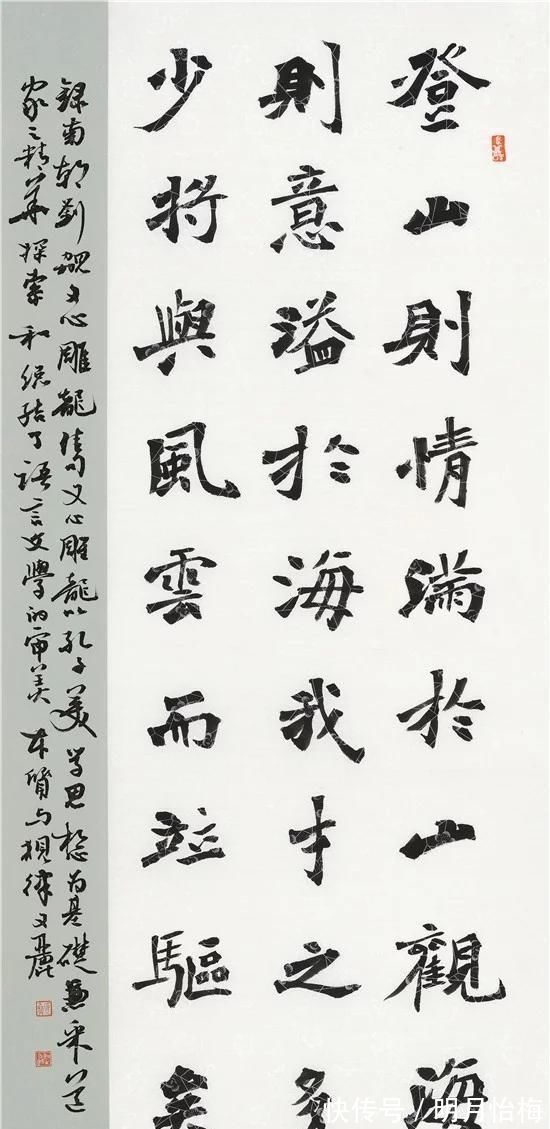 登山則情滿於山觀海
則意溢於海我才之多
少將與風雲而竝驅矣
錄南朝劉勰文心雕龍文心雕龍以孔子美學思想为基礎兼采道
家之精華探索和總結了語言文學的审美本質与規律文麗
快传号/明月怡梅